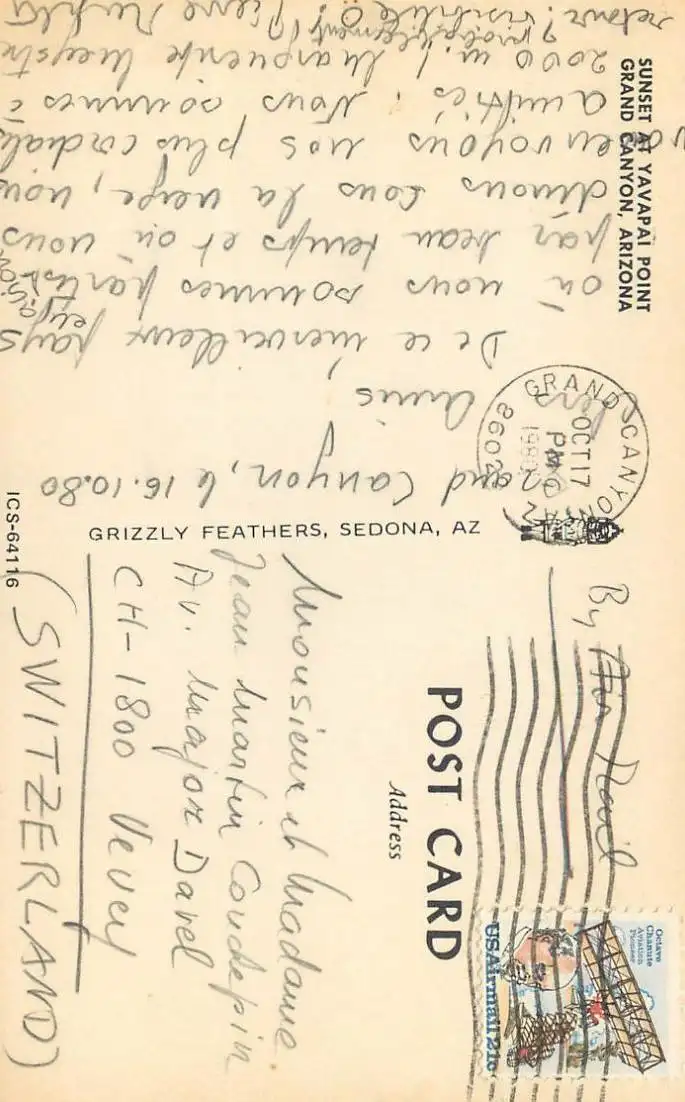 SUNSET AT YAVAPAI POINT
GRAND CANYON, ARIZONA
Grand Canyon, le 16.10.80
Chers amis,
De ce merveilleux pays
où nous sommes partis en avion
par beau temps et où nous
dînons sous la neige, nous
vous envoyons nos plus cordiales
amitiés. Nous sommes à
2000 m! Marguerite
retour! visibilité 0! Pierre
GRAND CANYON AZ
OCT 17
PM
1980
86023
GRIZZLY FEATHERS, SEDONA, AZ
ICS-64116
POST CARD
Address
By Air Mail
Octave
Chanute
Aviation
Pioneer
USAirmail 21c
Monsieur et Madame
Jean Martin Couchepin
Av. Major Davel
CH-1800 Vevey
(SWITZERLAND)